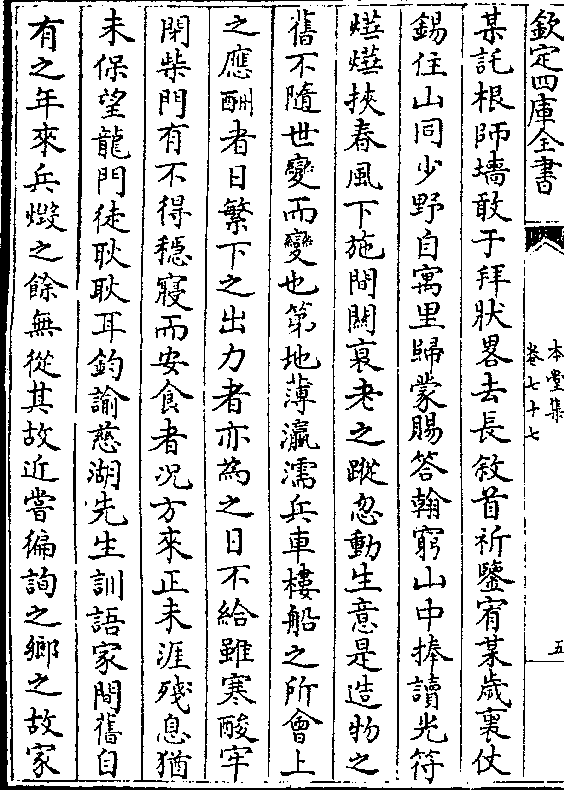 欽定四庫全書
本堂集
卷七十七
五
某託根師墻敢于拜狀畧去長敘首祈鑒宥某歲裏仗
錫住山同少野自寓里歸蒙賜答翰窮山中捧讀光符
爗爗挾春風下施間關衰老之蹤忽動生意是造物之
舊不隨世變而變也第地薄瀛濡兵車樓船之所會上
之應酬者日繁下之出力者亦為之日不給雖寒酸牢
閉柴門有不得穩寢而安食者况方來正未涯殘息猶
未保望龍門徒耿耿耳鈞諭慈湖先生訓語家間舊自
有之年來兵燬之餘無從其故近嘗徧詢之鄉之故家